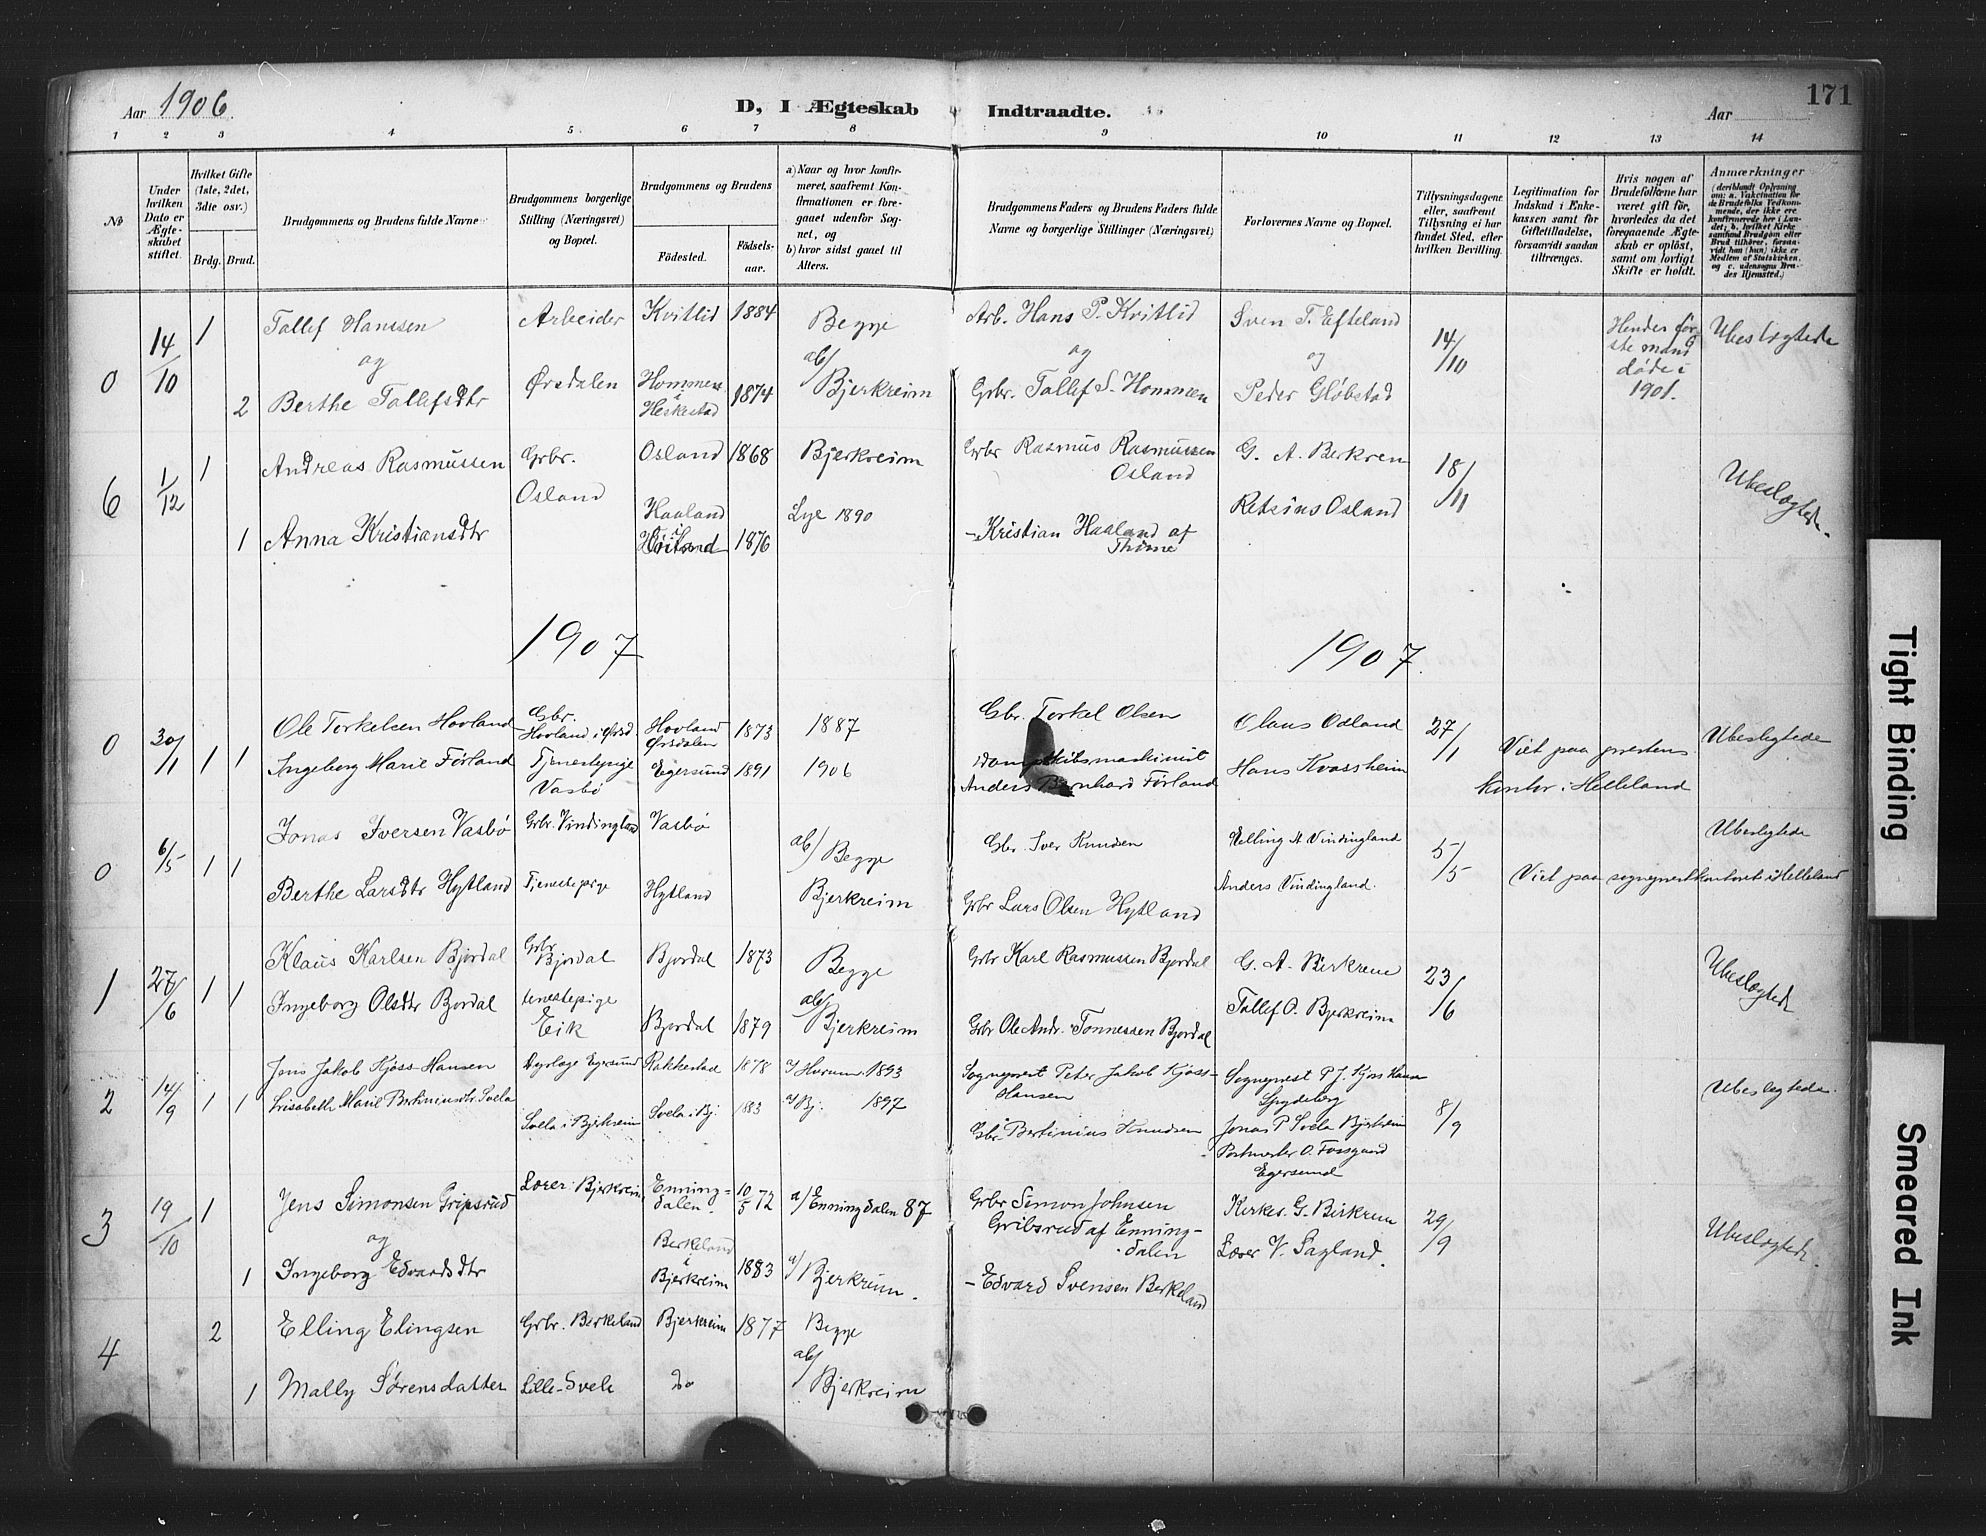 Aar 1906.
D, I Ægteskab Indtraadte.
Aar
171
1 2 3 4 5 6 7 8 9 10 11 12 13 14
No
Under hvilken Dato er Ægteskabet stiftet.
Hvilket Gifte (1ste, 2det, 3dte osv.)
Brdg. Brud.
Brudgommens og Brudens fulde Navne
Brudgommens borgerlige Stilling (Næringsvei) og Bopæl.
Brudgommens og Brudens
Fødested.
Fødselsaar.
a) Naar og hvor konfirmeret, saafremt Konfirmationen er foregaaet udenfor Sognet, og
b) hvor sidst gaaet til Alters.
Brudgommens Faders og Brudens Faders fulde Navne og borgerlige Stillinger (Næringsvei)
Forlovernes Navne og Bopæl.
Tillysningsdagene eller, saafremt Tillysning ei har fundet Sted, efter hvilken Bevilling.
Legitimation for Indskud i Enkekassen samt for Giftetilladelse, forsaavidt saadan tiltrænges.
Hvis nogen af Brudefolkene har været gift før, hvorledes da det foregaaende Ægteskab er opløst, samt om lovligt Skifte er holdt.
Anmærkninger
(deriblandt Oplysning om: a. Vakcination for de Brudefolks Vedkommende, der ikke ere konfirmerede her i Landet; b. hvilket Kirkesamfund Brudgom eller Brud tilhører, forsaavidt han (hun) ikke er Medlem af Statskirken, og c. udensogns Brudes Hjemsted.)
0 14/10 1 Tallef Hanssen Arbeider Kvitlid 1884 Begge Arb. Hans P. Kvitlid Sven T. Efteland 14/10 Hendes første mand døde i 1901. Ubeslægtede
og ab/ og og
2 Berthe Tallefsdtr Ørsdalen Hommen i Heskestad 1874 Bjerkreim Grbr. Tallef S. Hommen Peder Gløbstad
6 1/12 1 Andreas Rasmussen Grbr. Osland Osland 1868 Bjerkreim Grbr Rasmus Rasmussen Osland G. A. Berkren 18/11 Ubeslægtede.
1 Anna Kristiansdtr Haaland i 1876 Lye 1890 - Kristian Haaland af Thime Retsius Osland
1907 1907.
0 30/1 1 1 Ole Torkelsen Hovland Gbr. Hovland i Ørsd. Hovland Ørsdalen 1873 1887 Gbr. Torkel Olsen Claus Odland 27/1 Viet paa prestens Ubeslegtede
Ingeborg Marie Förland Tjenestepige Vasbø Egersund 1891 1906 Dampskibsmaskinist Anders Bernhard Förland Hans Kvassheim kontor i Helleland
0 6/5 1 1 Jonas Iversen Vasbø Grbr. Vindingland Vasbø ab/ Begge Gbr. Iver Knudsen Velling A Vindingland 5/5 Ubeslegtede
Berthe Larsdtr Hytland Tjenestepige Hytland Bjerkreim Grbr Lars Olsen Hytland Anders Vindingland. Viet paa sogneprestkontoret i Helleland
1 27/6 1 1 Klaus Karlsen Bjordal Grbr Bjordal Bjordal 1873 Begge Grbr Karl Rasmussen Bjordal G. A. Birkrem 23/6 Ubeslægted
Ingeborg Olsdtr Bjordal tenestepige Eik Bjordal 1879 ab/ Bjerkreim Grbr Ole Andr. Tonnessen Bjordal Tallef O. Bjerkreim
2 14/9 1 1 Jens Jakob Kjøss Hansen Dyrlæge Egersund Rakkestad 1878 a/ Hurum 1893 Sogneprest Peter Jakob Kjøss-Hansen Sogneprest P J. Kjøss Hansen Spydeberg 8/9 Ubeslegtede.
Lisabeth Marie Svela Svela i Bjerkreim Svela i Bj. 1883 a/ Bj. 1897 Gbr. Bertinius Knudsen Jonas P Svela Bjerkreim
Postmester O. Fossgaard Egersund
3 19/10 1 Jens Simonsen Gripsrud Lærer i Bjerkreim Enningdalen 10/5 72 a/ Enningdalen 87 Grbr Simon Johnsen Gribsrud af Enningdalen Kirkes. G. Birkrem 29/9 Ubeslægtede.
og
1 Ingeborg Edvardsdtr Berkeland i Bjerkreim 1883 a/ Bjerkreim. - Edvard Svensen Berkeland Lærer V. Sagland.
4 2 Elling Elingsen Grbr. Berkeland Bjerkreim 1877 Begge
ab/
1 Mally Sørensdatter Lille-Svele Do Bjerkreim
Tight Binding
Smeared Ink